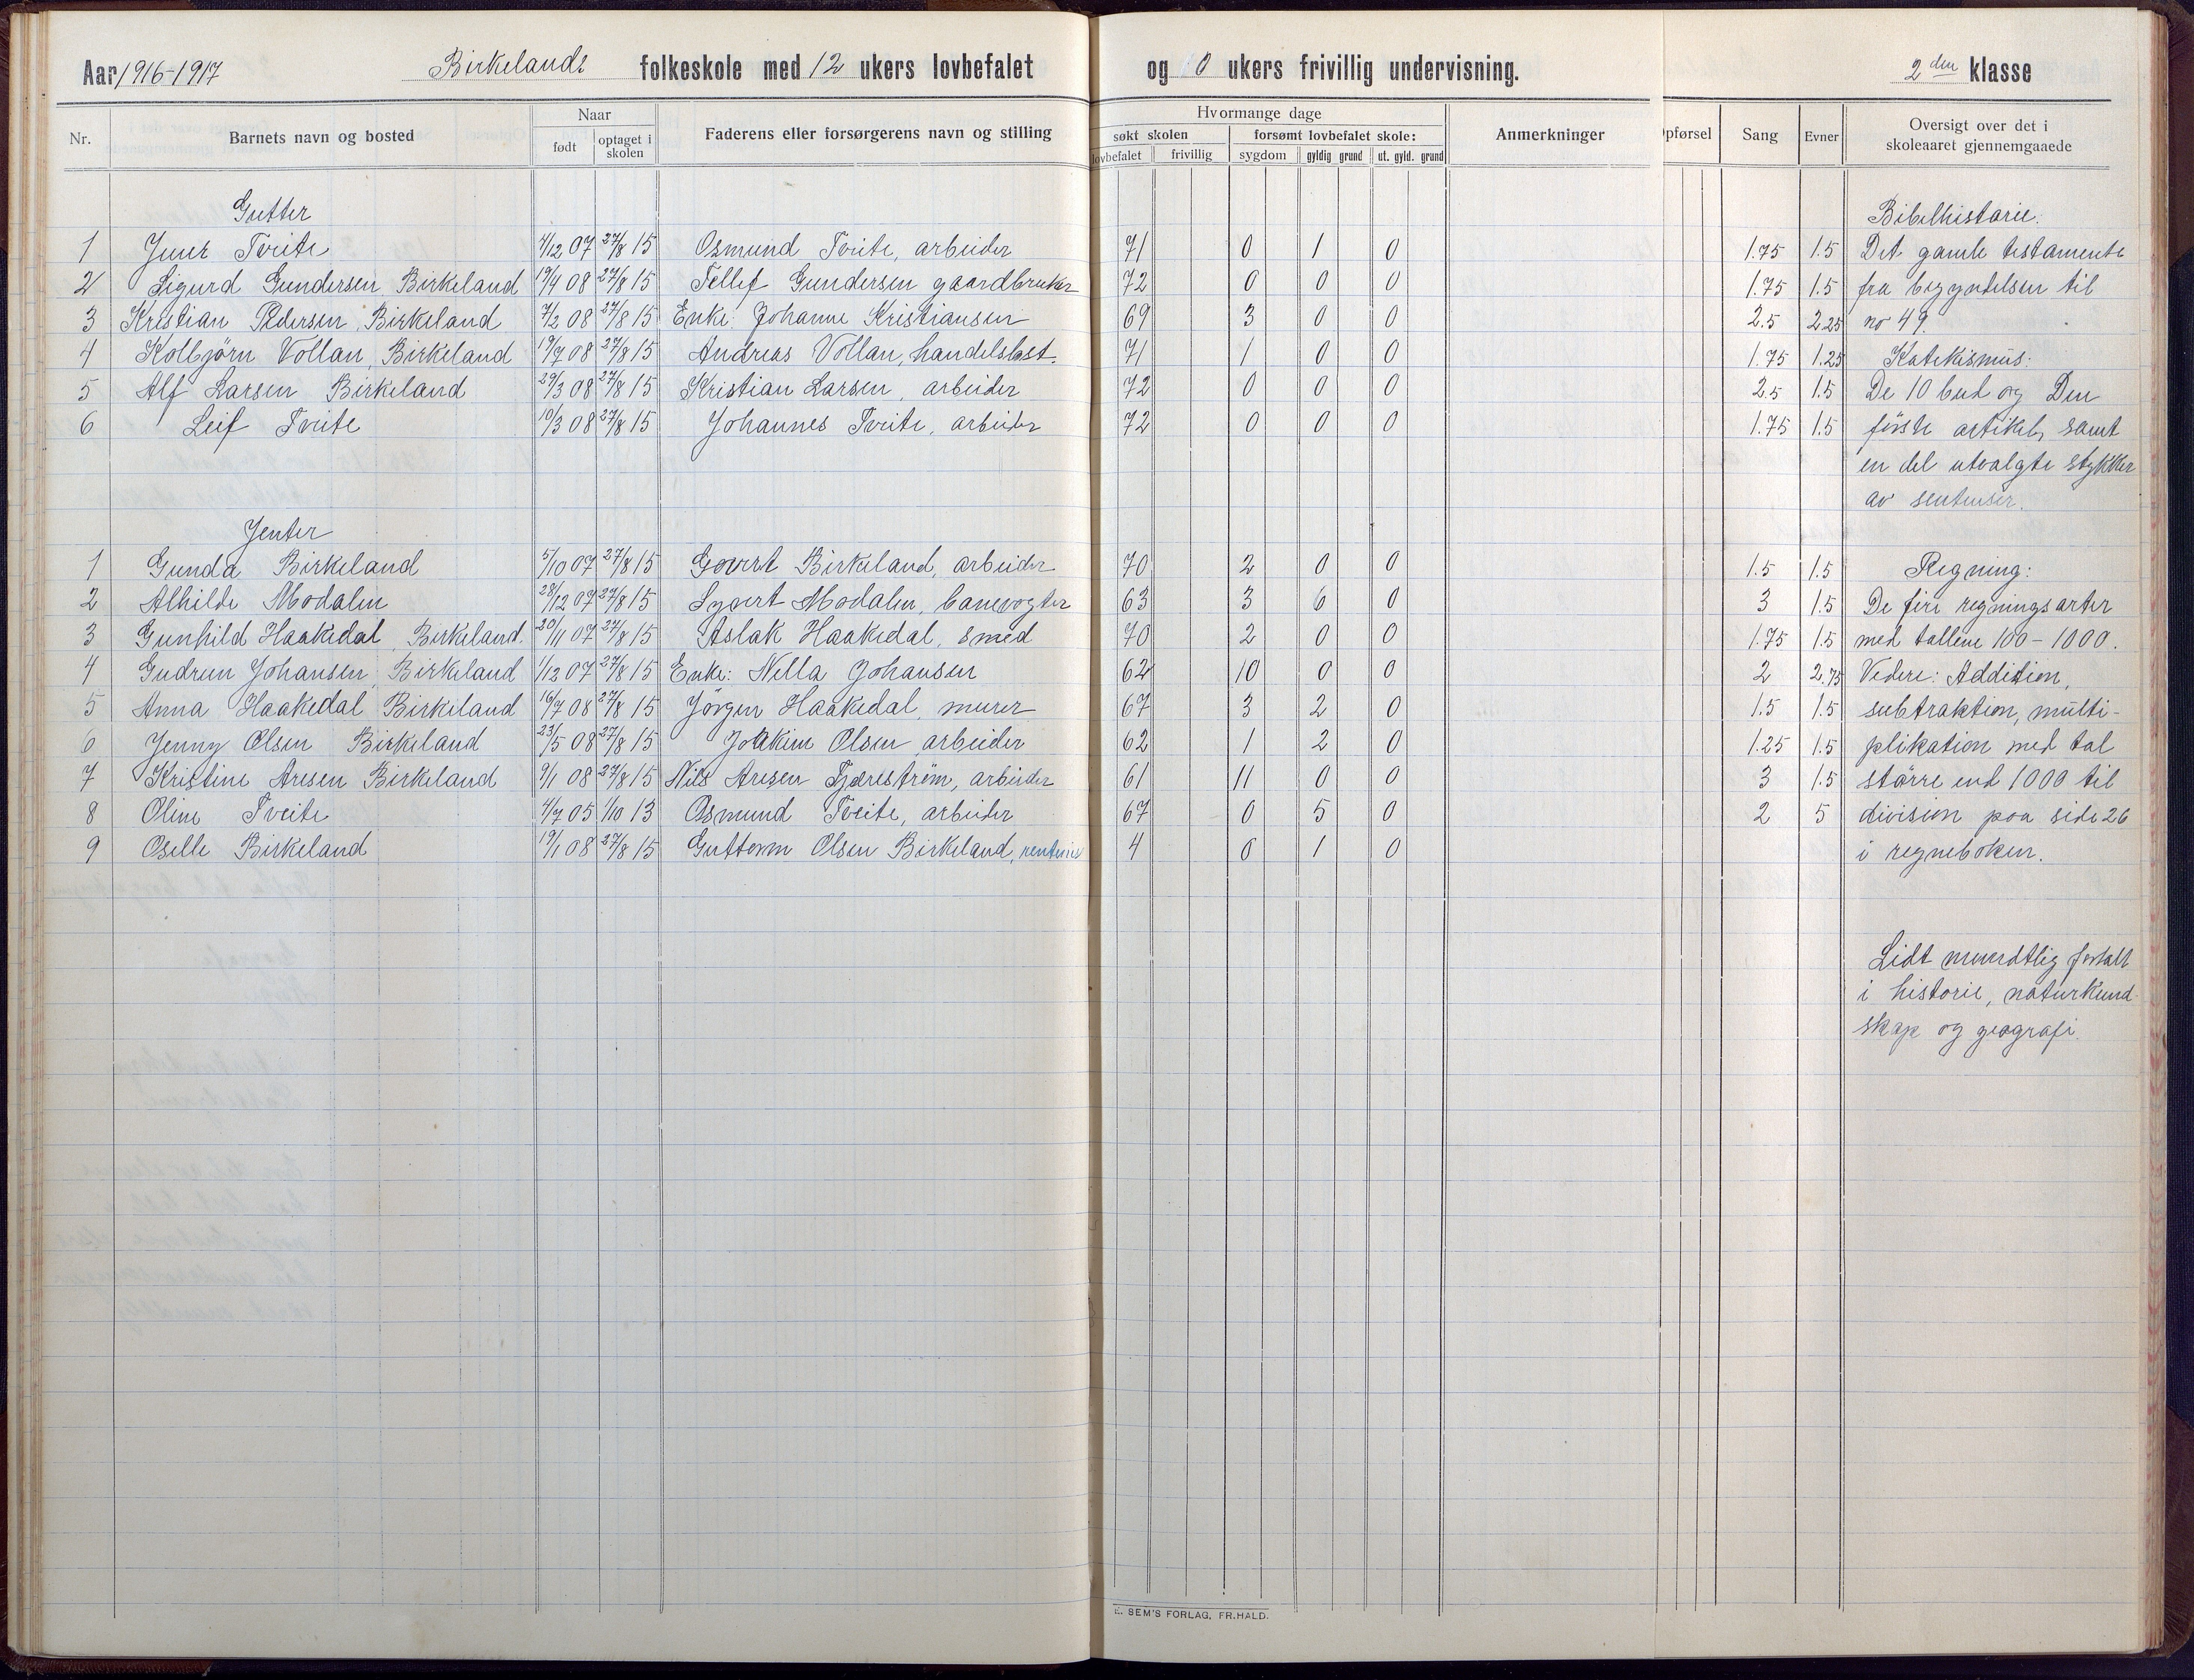 Aar 1916-1917 Birkelands folkeskole med 12 ukers lovbefalet og 0 ukers frivillig undervisning. 2den klasse
Nr. Barnets navn og bosted Naar født optaget i skolen Faderens eller forsørgerens navn og stilling Hvormange dage søkt skolen lovbefalet frivillig forsømt lovbefalet skole: sygdom gyldig grund ut. gyld. grund Anmerkninger pførsel Sang Evner Oversigt over det i skoleaaret gjennemgaaede
Gutter Bibelhistorie.
1 Tveite 4/12 07 27/8 15 Osmund Tveite, arbeider 71 0 1 0 1.75 1.5 Det gamle testamente
2 Sigurd Gundersen Birkeland 19/4 08 27/8 15 Tellef Gundersen gaardbruker 72 0 0 0 1.75 1.5 fra begyndelsen til
3 Kristian Pedersen, Birkeland 7/2 08 27/8 15 Enke: Johanne Kristiansen 69 3 0 0 2.5 2.25 no 49.
4 Kolbjörn Vollan, Birkeland 19/7 08 27/8 15 Andreas Vollan, handelsbest. 71 1 0 0 1.75 1.25 Katekismus:
5 Alf Larsen Birkeland 29/3 08 27/8 15 Kristian Larsen, arbeider 72 0 0 0 2.5 1.5 De 10 bud og Den
6 Leif Tveite 10/3 08 27/8 15 Johannes Tveite, arbeider 72 0 0 0 1.75 1.5 förste artikel, samt
en del utvalgte stykker
av sentenser.
Jenter
1 Gunda Birkeland 5/10 07 27/8 15 Govert Birkeland, arbeider 70 2 0 0 1.5 1.5 Regning:
2 Alhilde Modalen 28/12 07 27/8 15 Sygert Modalen, banevogter 63 3 6 0 3 1.5 De fire regningsarter
3 Gunhild Haakedal, Birkeland. 20/11 07 27/8 15 Aslak Haakedal, smed 70 2 0 0 1.75 1.5 med tallene 100-1000.
4 Gudrun Johansen, Birkeland 1/12 07 27/8 15 Enke: Nella Johansen 62 10 0 0 2 2.75 Videre: Addition,
5 Anna Haakedal Birkeland 16/7 08 27/8 15 Jörgen Haakedal, murer 67 3 2 0 1.5 1.5 subtraktion, multi-
6 Jenny Olsen Birkeland 23/5 08 27/8 15 Joakim Olsen arbeider 62 1 2 0 1.25 1.5 plikation med tal
7 Kristine Aresen Birkeland 9/1 08 27/8 15 Nils Aresen Fjærestrøm, arbeider 61 11 0 0 3 1.5 större end 1000 til
8 Oline Tveite 4/7 05 1/10 13 Osmund Tveite, arbeider 67 0 5 0 2 5 division paa side 26
9 Oselle Birkeland 19/1 08 27/8 15 Guttorm Olsen Birkeland, 4 0 1 0 i regneboken.
Lidt mundtlig fortalt
i historie, naturkund-
skap og geografi.
E. SEM'S FORLAG, FR.HALD.